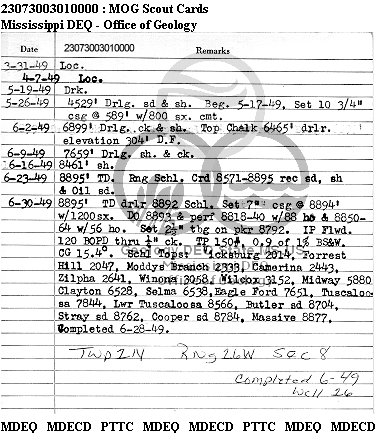 23073003010000 : MOG Scout Cards
Mississippi DEQ - Office of Geology
Date 23073003010000 Remarks
3-31-49 Loc.
4-7-49 Loc.
5-19-49 Drk.
5-26-49 4529' Drlg. sd & sh. Beg. 5-17-49, Set 10 3/4"
csg @ 589' w/800 sx. cmt.
6-2-49 6899' Drlg. ck & sh. Top Chalk 6465' drlr.
elevation 304' D.F.
6-9-49 7659' Drlg. sh. & ck.
6-16-49 8461' sh.
6-23-49 8895' TD. Rng Schl. Crd 8571-8895 rec sd, sh
& Oil sd.
6-30-49 8895' TD drlr 8892 Schl. Set 7" csg @ 8894'
w/1200sx. DO 8893 & perf 8818-40 w/88 ho & 8850-
64 w/56 ho. Set 2½" tbg on pkr 8792. IP Flwd.
120 BOPD thru ¼" ck. TP 150#. 0.9 of 1% BS&W.
CG 15.4°. Schl Tops: Vicksburg 2014, Forrest
Hill 2047, Moddys Branch 2338, Camerina 2443,
Zilpha 2641, Winona 3058, Wilcox 3152, Midway 5880
Clayton 6528, Selma 6538, Eagle Ford 7651, Tuscaloo-
sa 7844, Lwr Tuscaloosa 8566, Butler sd 8704,
Stray sd 8762, Cooper sd 8784, Massive 8877,
Completed 6-28-49.
Twp 2N Rng 26W Sec 8
Completed 6-49
Well 26
MDEQ MDECD PTTC MDEQ MDECD PTTC MDEQ MDECD